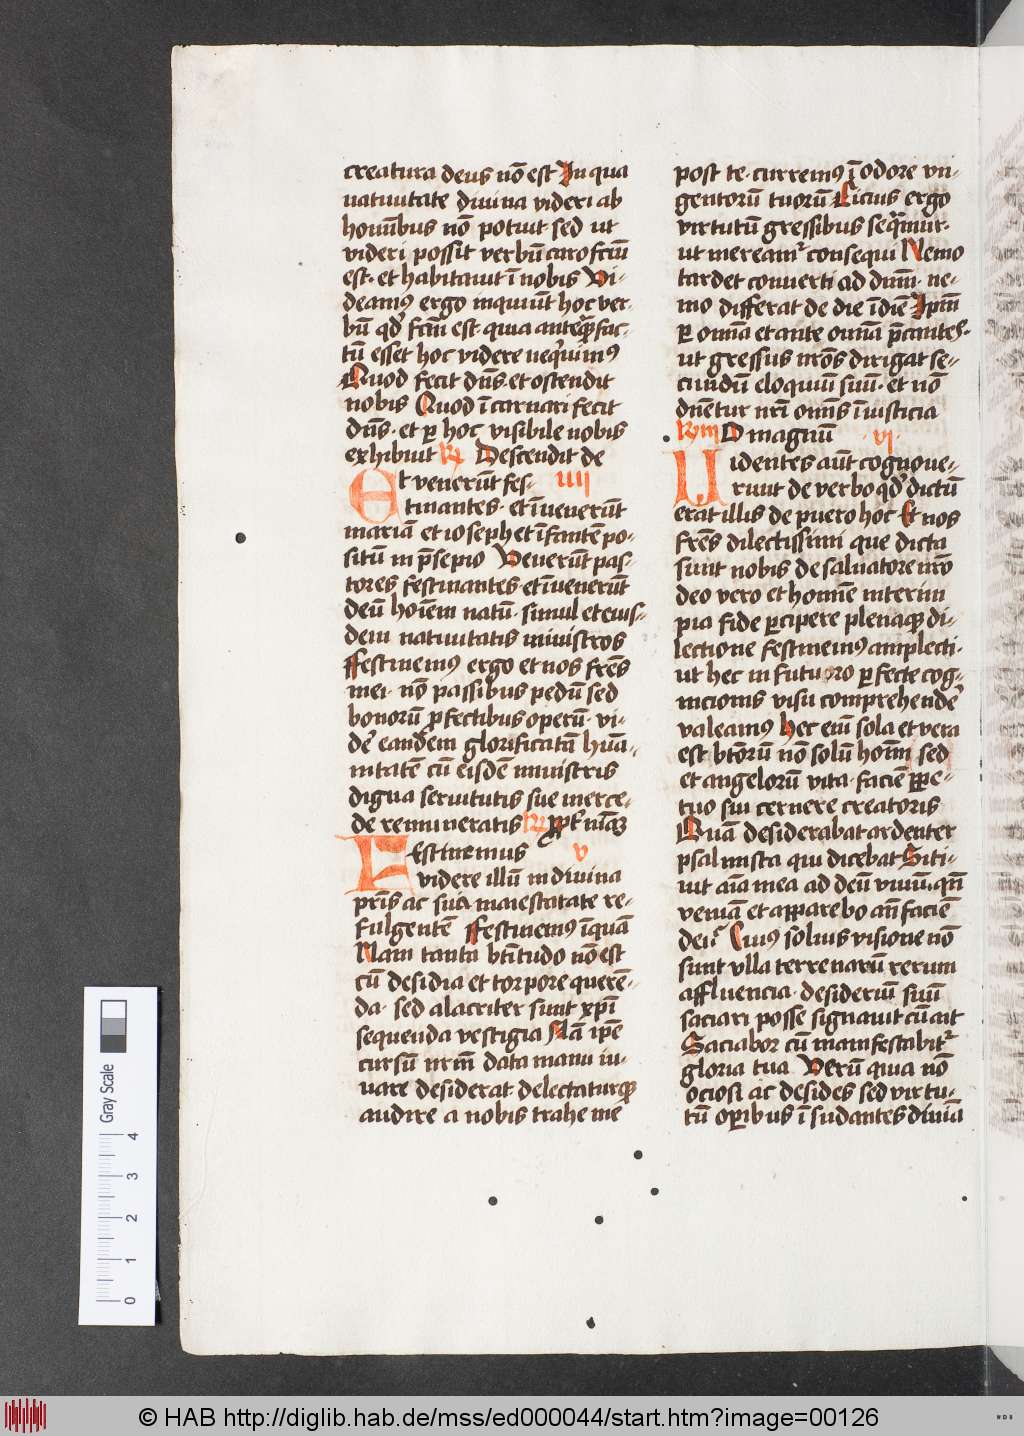 creatura deus nō est In qua
natiuitate diuina videri ab
hominibus nō potuit sed ut
videri possit verbū caro fcm̄
est· et habitauit ī nobis Vi-
deamus ergo inquiūt hoc ver-
bū qd' fcm̄ est· quia anteq̄ fac-
tū esset hoc videre nequiuimꝰ
Quod fecit dn̄s· et ostendit
nobis Quod īcarnari fecit
dn̄s· et ꝑ hoc visibile nobis
exhibuit R Descendit de
Et venerūt fes- IIII
tinantes· et īuenerūt
mariam et ioseph et īfantē po-
sitū in p̄sepio Venerūt pas-
tores festinantes· et īuenerūt
deū hoīem natū· simul et eius-
dem natiuitatis ministros
ffestinemꝰ ergo et nos frēs
mei· nō passibus pedū sed
bonorū ꝓfectibus operū· vi-
de' eandem glorificatā humā-
nitatē cū eisdē ministris
digna seruitutis sue merce-
de remuneratis R
Festinemus V
videre illū in diuina
pr̄is ac sua maiestatate re-
fulgentē ffestinemus īquā
Nam tanta bt̄itudo nō est
cū desidia et torpore querē-
da· sed alacriter sunt xp̄i
sequenda vestigia Nā ip̄e
cursū nr̄m data manu iu-
uare desiderat· delectaturqꝫ
audire a nobis trahe me
post te· curremꝰ ī odore vn-
gentorū tuorū Cicius ergo
virtutū gressibus seq̄mur·
ut meream̄ consequi Nemo
tardet conuerti ad dūm̄· ne-
mo differat de die ī diē Ip̄m
ꝑ om̄ia et ante om̄ia p̄cantes·
ut gressus nr̄os dirigat se-
cundū eloquiū suū· et nō
dn̄etur nr̄i omīs īiusticia
R iii O magnū VI
Uidentes aūt cognoue-
runt de verbo qd' dictū
erat illis de puero hoc Et nos
frēs dilectissimi que dicta
sunt nobis de saluatore nr̄o
deo vero et homīe interim
pia fide ꝑcipere plenaqꝫ di-
lectione festinemꝰ amplecti·
ut hec in futuro ꝑfecte cog-
nicionis visu comprehende'
valeamꝰ Hec enī sola et vera
est bt̄orū nō solū homī sed
et angelorū vita· faciē ꝑpe-
tuo sui cernere creatoris
Quā desiderabat ardenter
psalmista qui dicebat Siti-
uit aīa mea ad deū viuū· qn̄
veniā et apparebo an̄ faciē
dei? Cuius solius visione nō
sunt vlla terrenarū rerum
affluencia· desideriū suū
saciari posse signauit cū ait
Saciabor cū manifestabit'
gloria tua Verū quia nō
ociosi ac desides sed virtu-
tū oꝑibus īsudantes diuinā
Gray Scale
4
3
2
1
0
© HAB http://diglib.hab.de/mss/ed000044/start.htm?image=00126